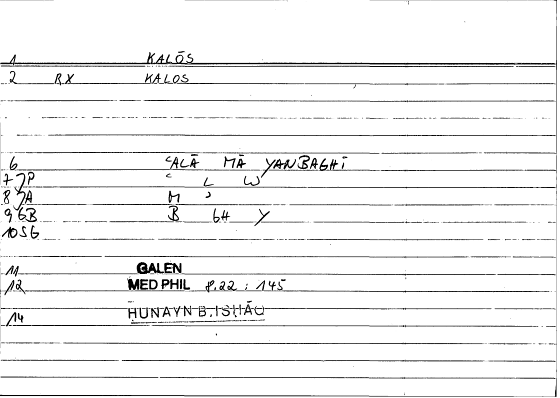 1 KALŌS
2 RX KALOS
6 ʿALĀ MĀ YANBAGHĪ
7 7P ʿ L W
8 7A M ʾ
9 6B B GH Y
10 5G
11 GALEN
12 MED PHIL 8.22 : 145
14 HUNAYN B. ISHĀQ